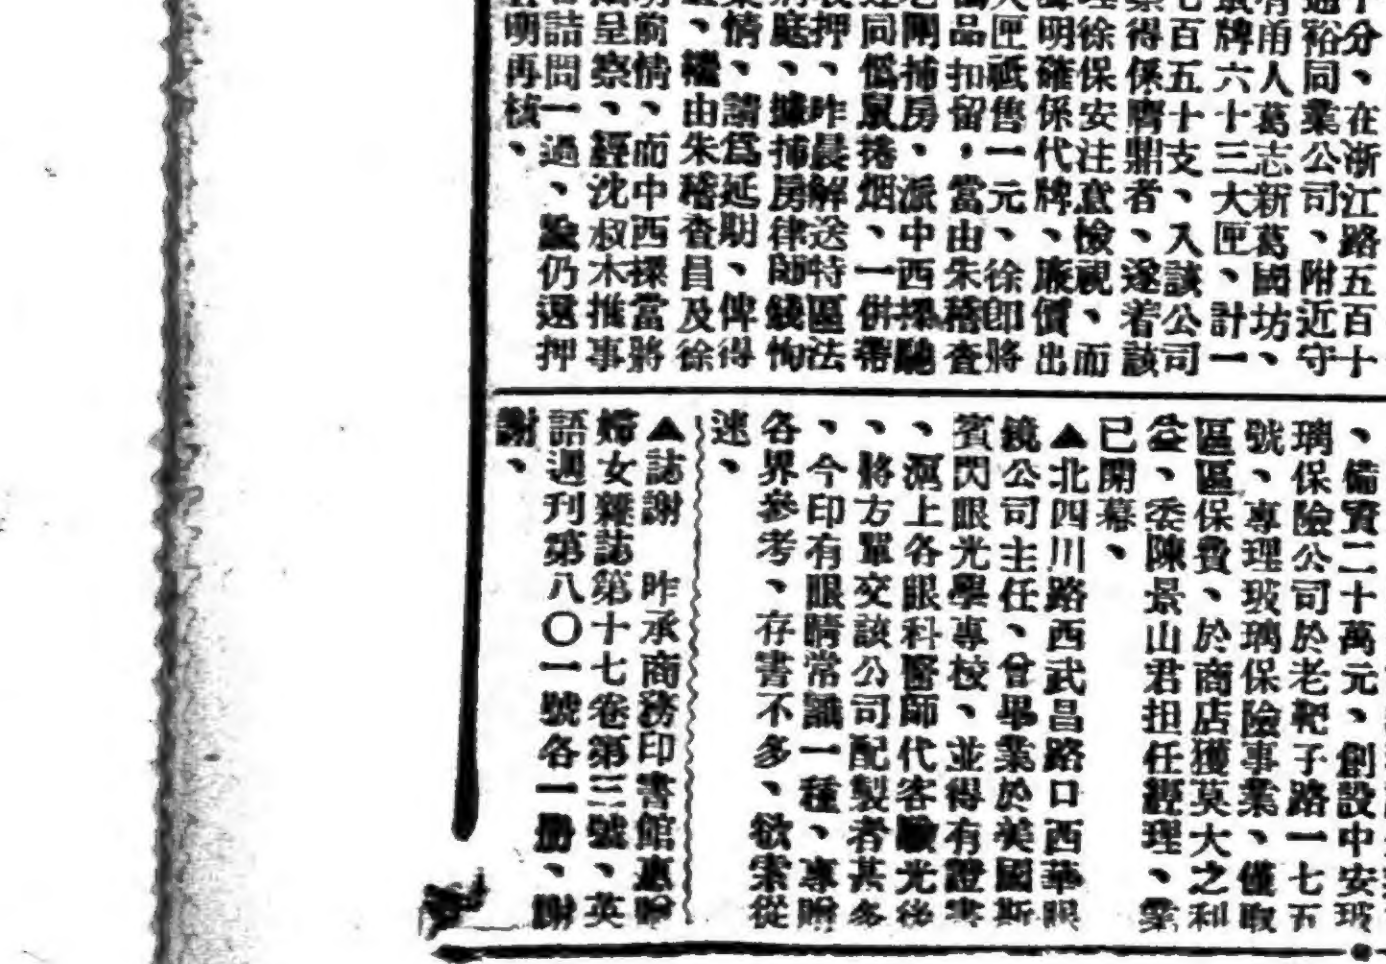 十分、在浙江路五百十
通裕同業公司、附近守
有甬人葛志新葛國坊、
牌六十三大匣、計一
七百五十支、入該公司
得係膺鼎者、遂着該
理徐保安注意檢視、而
明確係代牌、廉價出
大匣祇售一元、徐卽將
品扣留、當由朱稽查
老閘捕房、派中西探馳
同傷鼠捲烟、一併帶
押、昨晨解送特區法
庭、據捕房律師錢恂
情、請爲延期、俾得
、繼由朱稽查員及徐
前情、而中西探當將
呈察、經沈叔木推事
詰問一過、諭仍還押
明再核、
、備資二十萬元、創設中安玻
璃保險公司於老靶子路一七五
號、專理玻璃保險事業、僅取
區區保費、於商店獲莫大之利
益、委陳景山君担任經理、業
已開幕、
▲北四川路西武昌路口西華眼
鏡公司主任、曾畢業於美國斯
賓閃眼光學專校、並得有證書
、滬上各眼科醫師代客驗光後
、將方單交該公司配製者甚多
、今印有眼睛常識一種、專贈
各界參考、存書不多、欲索從
速、
▲誌謝 昨承商務印書館惠贈
婦女雜誌第十七卷第三號、英
語週刊第八〇一號各一册、謝
謝、